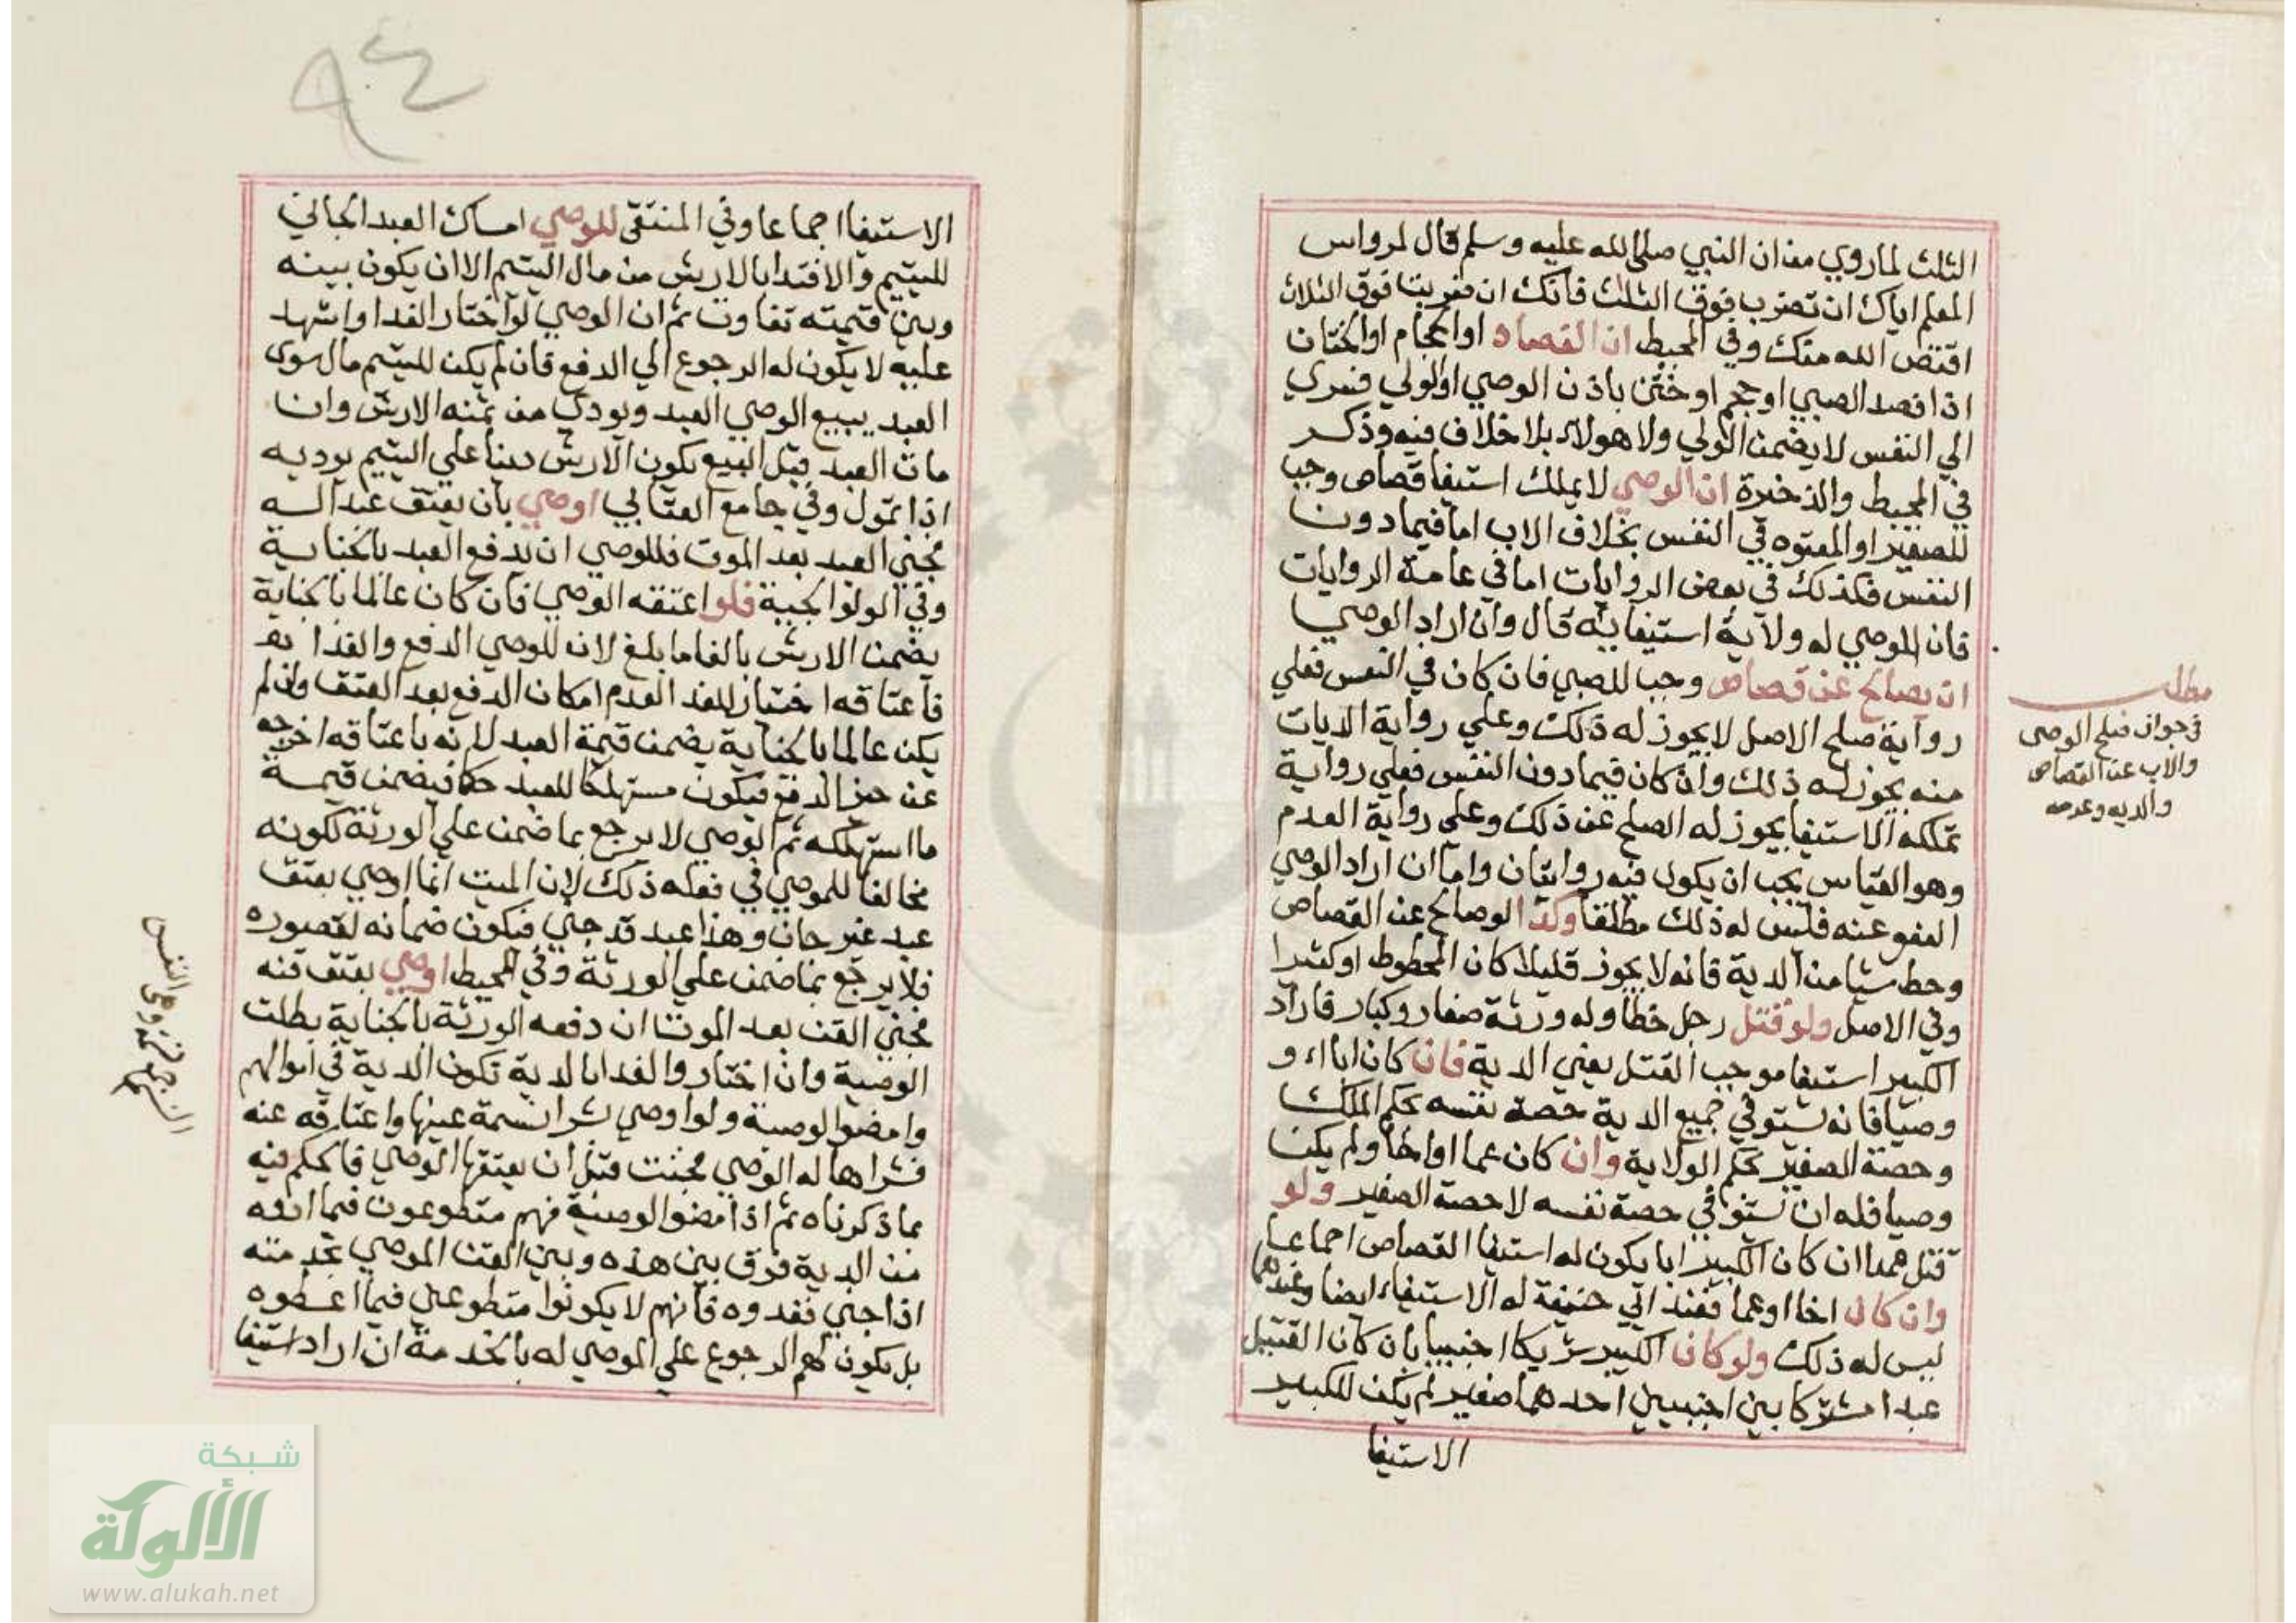 الثلث لما روي من ان النبي صلى الله عليه وسلم قال لمرداس
المعلم اياك ان تضرب فوق الثلث فانك ان ضربت فوق الثلاث
اقتص الله منك وفي المحيط ان الفصاد او الحجام او الختان
اذا فصد الصبي او حجم او ختن باذن الوصي او الولي فسرى
الي النفس لا يضمن الولي ولا هولاء بلا خلاف فيه وذكر
في المحيط والذخيرة ان الوصي لا يملك استيفا قصاص وجب
للصغير او المعتوه في النفس بخلاف الاب اما فيما دون
النفس فكذلك في بعض الروايات اما في عامة الروايات
فان الموصي له ولاية استيفايه قال وان اراد الوصي
ان يصالح عن قصاص وجب للصبي فان كان في النفس فعلي
رواية صلح الاصل لا يجوز له ذلك وعلي رواية الديات
منه يجوز له ذلك وان كان فيما دون النفس فعلي رواية
تملكه الاستيفا يجوز له الصلح عن ذلك وعلي رواية العدم
وهو القياس يجب ان يكون فيه روايتان واما ان اراد الوصي
العفو عنه فليس له ذلك مطلقا وكذا لو صالح عن القصاص
وحط شيا من الدية فانه لا يجوز قليلا كان المحطوط او كثيرا
وفي الاصل ولو قتل رجل خطا وله ورثة صغار وكبار فاراد
الكبير استيفا موجب القتل يعني الدية فان كان ابا او
وصيا فانه يستوفي جميع الدية حصة نفسه بحكم الملك
وحصة الصغير بحكم الولاية وان كان عما او اخا ولم يكن
وصيا فله ان يستوفي حصة نفسه لا حصة الصغير ولو
قتل عمدا ان كان الكبير ابا يكون له استيفا القصاص اجماعا
وان كان اخا او عما فعند ابي حنيفة له الاستيفاء ايضا وعندهما
ليس له ذلك ولو كان الكبير شريكا اجنبيا بان كان القتيل
عبدا مشتركا بين اجنبيين احدهما صغير لم يكن للكبير
الاستيفا
مطلب
في جواز صلح الوصي
والاب عن القصاص
والديه وعدمه
٩٤
الاستيفا اجماعا وفي المنتقى للوصي امساك العبد الجاني
لليتيم والافتدا بالارش من مال اليتيم الا ان يكون بينه
وبين قيمته تفاوت ثم ان الوصي لو اختار الفدا واشهد
عليه لا يكون له الرجوع الي الدفع فان لم يكن لليتيم مال سوى
العبد يبيع الوصي العبد ويودي من ثمنه الارش وان
مات العبد قبل البيع يكون الارش دينا علي اليتيم يوديه
اذا تمول وفي جامع العتابي اوصي بان يعتق عبدا له
فجني العبد بعد الموت فللوصي ان يدفع العبد بالجناية
وفي الولوالجية فلو اعتقه الوصي فان كان عالما بالجناية
يضمن الارش بالغا ما بلغ لان للوصي الدفع والفدا
فاعتاقه اختيار للفدا لعدم امكان الدفع بعد العتق وان لم
يكن عالما بالجناية يضمن قيمة العبد لانه باعتاقه اخرجه
عن حيز الدفع فيكون مستهلكا للعبد حكما فيضمن قيمة
ما استهلكه ثم الوصي لا يرجع بما ضمن علي الورثة لكونه
مخالفا للموصي في فعله ذلك لان الميت انما اوصي بعتق
عبد غير جان وهذا عبد قد جني فيكون ضمانه لقصوره
فلا يرجع بما ضمن علي الورثة وفي المحيط اوصي بعتق قنه
فجني القن بعد الموت ان دفعه الورثة بالجناية بطلت
الوصية وان اختاروا الفدا بالدية تكون الدية في اموالهم
وامضوا الوصية ولو اوصي بشرا نسمة عينها واعتاقه عنه
فشراها له الوصي فجنت قبل ان يعتقها الوصي فالحكم فيه
بما ذكرناه ثم اذا امضوا الوصية فهم متطوعون فيما ادوه
من الدية فرق بين هذه وبين القن الموصي بخدمته
اذا جني ففدوه فانهم لا يكونوا متطوعين فيما اعطوه
بل يكون لهم الرجوع علي الموصي له بالخدمة ان اراد استيفا
شبكة
الألوكة
www.alukah.net